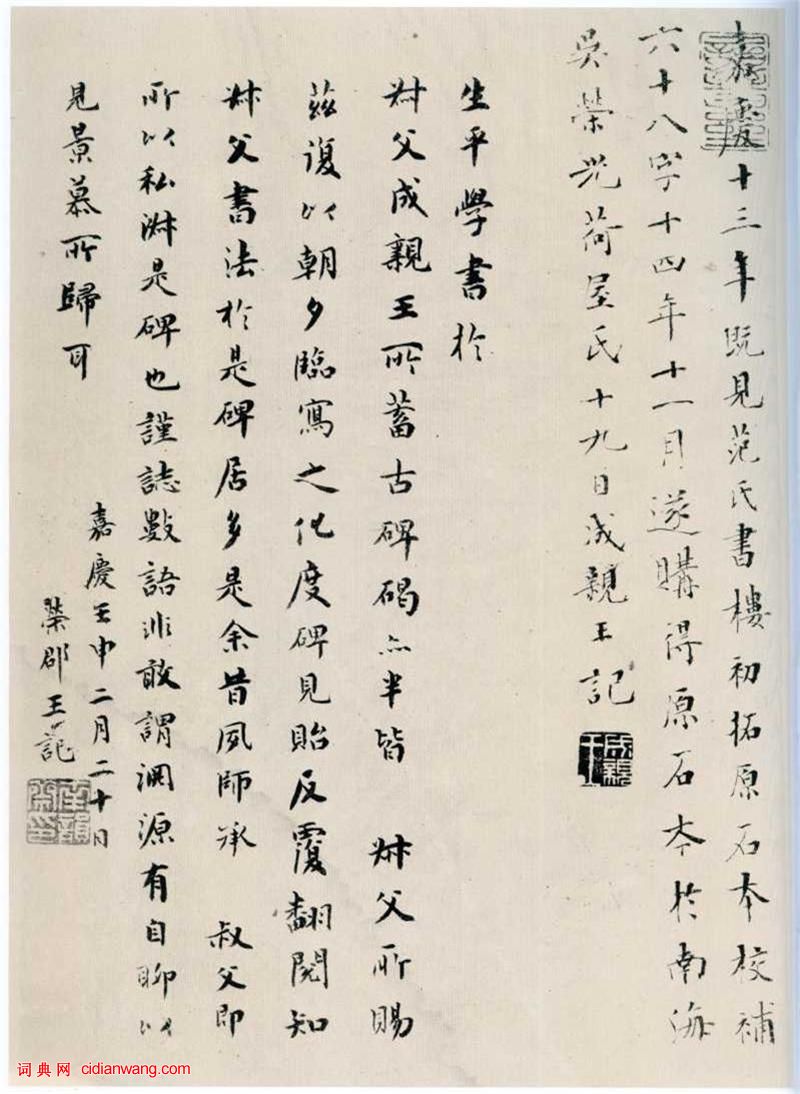 嘉慶十三年既見范氏書樓初拓原石本校補
六十八字十四年十一月遂購得原石本於南海
吳榮光荷屋氏十九日成親王記
成親王
生平學書於
叔父成親王所蓄古碑碣亦半皆 叔父所賜
茲復以朝夕臨寫之化度碑見貽反覆翻閱知
叔父書法於是碑居多是余昔夙師承 叔父即
所以私淑是碑也謹誌數語非敢謂淵源有自聊以
見景慕所歸耳
嘉慶壬申二月二十日
榮郡王記
词典网 cidianwang.com